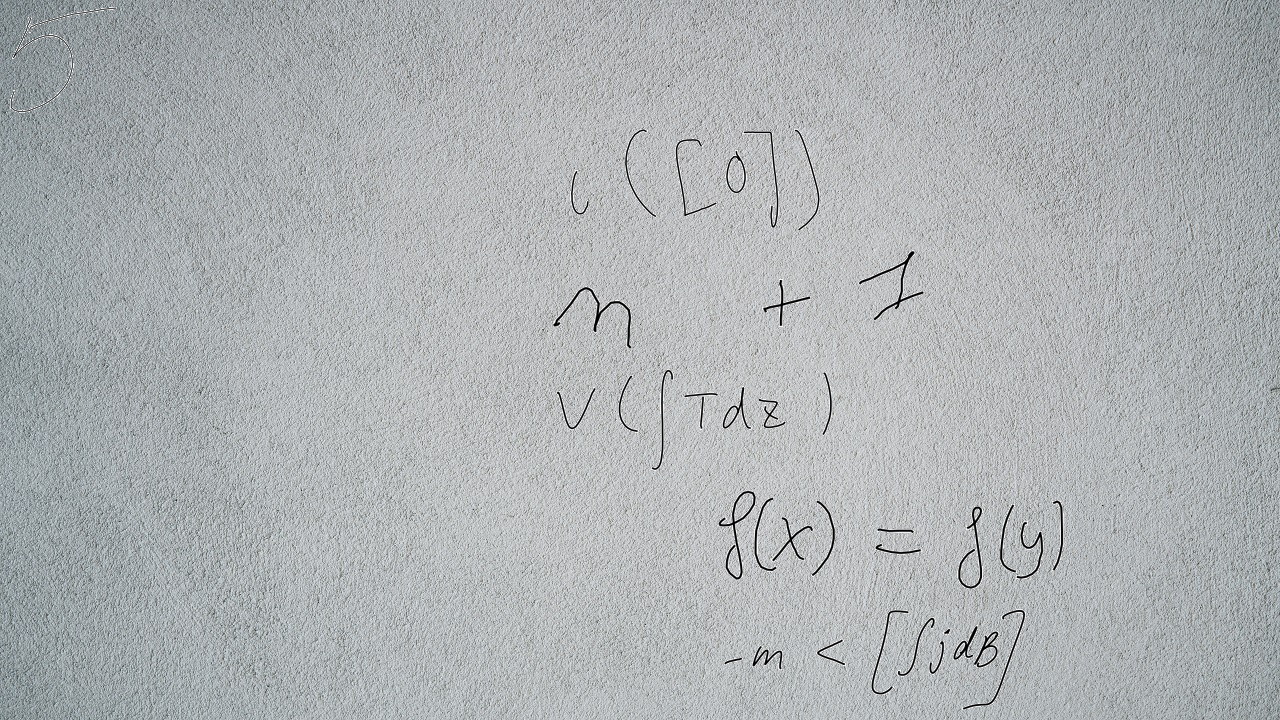 5
ι([0])
n + 1
V(∫Tdz)
f(x) = f(y)
-m < [∫jdB]